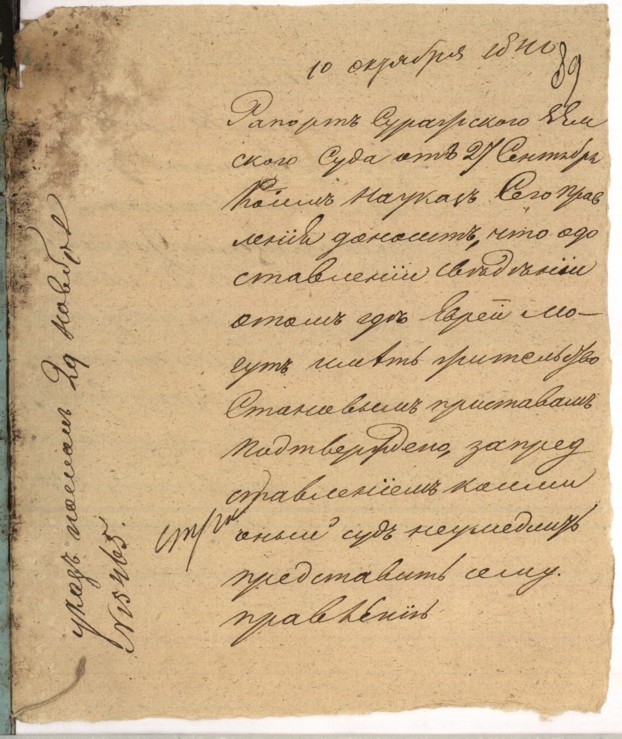 10 октября 1840
89
Рапортъ Суражского Зем
ского Суда отъ 27 Сентября
Коимъ научазъ Сего Прав
ления доноситъ, что одо
ставлении сведении
отомъ где Еврей мо-
гутъ иметь жительство
Становымъ приставамъ
Подтверждено, запред
ставлениемъ коими
оный судъ неумедлитъ
представить сему.
правлению
указъ посланъ 29 ноября
№ 15465.